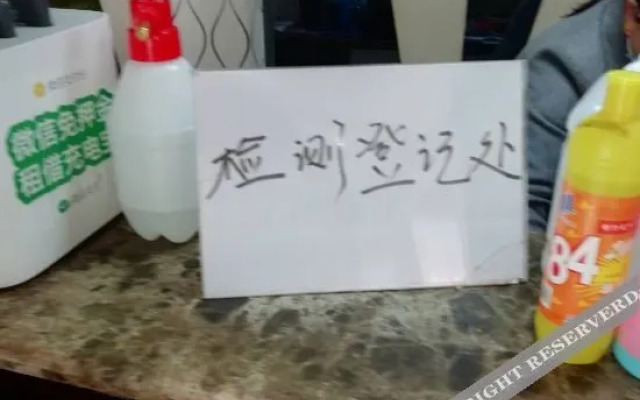 检测登记处
微信免押金
租借充电宝
84
RIGHT RESERVED